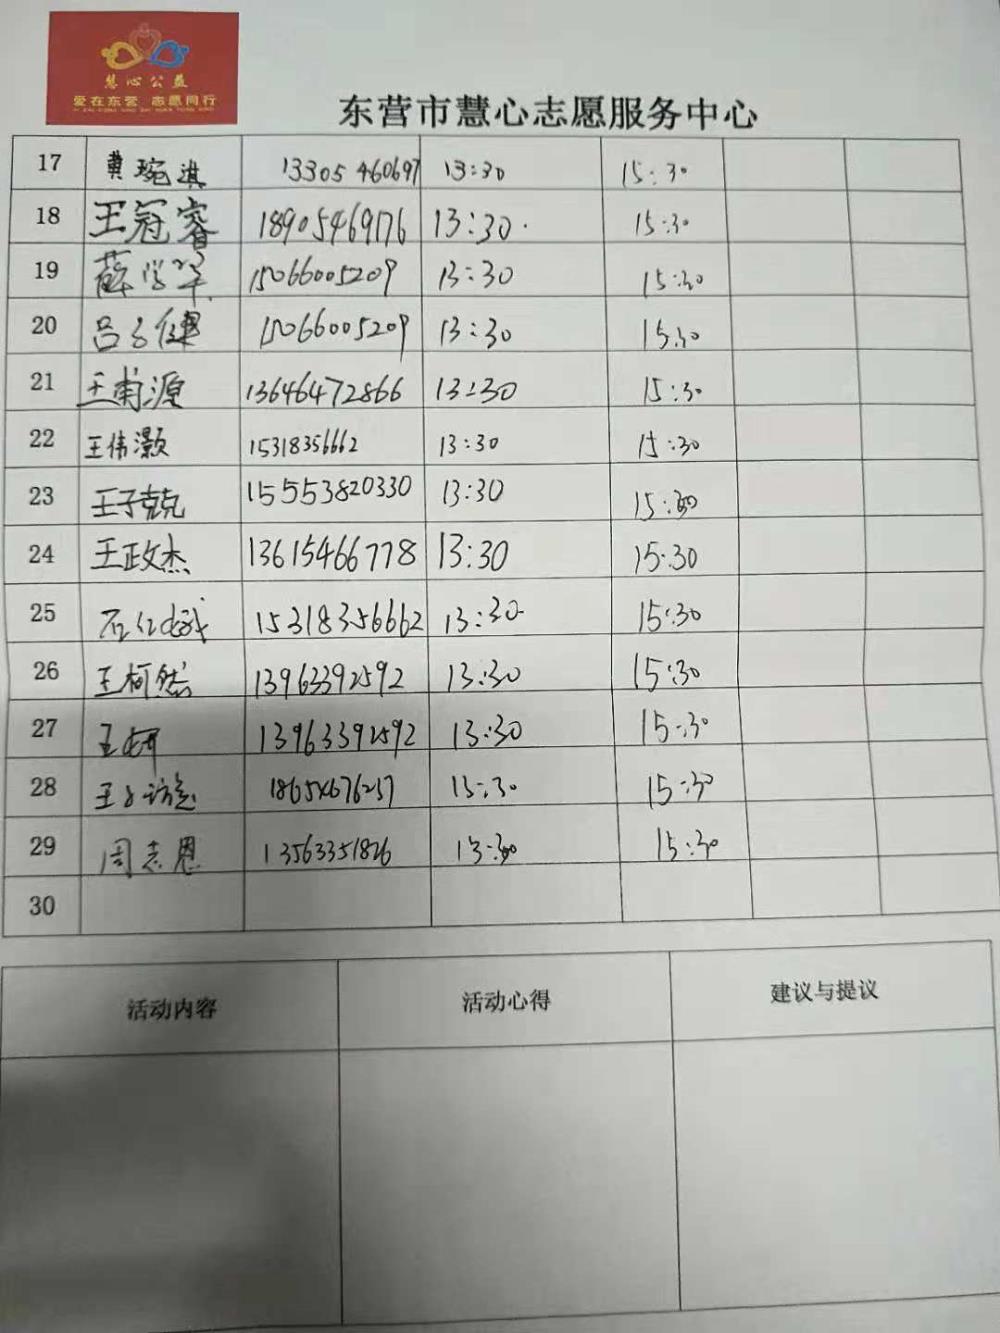 慧心公益
爱在东营 志愿同行
东营市慧心志愿服务中心
17 黄琬淇 13305460697 13:30 15:30
18 王冠睿 18905469176 13:30. 15:30
19 薛学军 15066005209 13:30 15:30
20 吕子健 15066005209 13:30 15:30
21 王甫源 13646472866 13:30 15:30
22 王伟灏 15318356662 13:30 15:30
23 王子兢 15553820330 13:30 15:30
24 王政杰 13615466778 13:30 15:30
25 15318356662 13:30 15:30
26 王柯然 13963392592 13:30 15:30
27 王妍 13963392592 13:30 15:30
28 王 13:30 15:30
29 周志恩 13563351826 13:30 15:30
30
活动内容 活动心得 建议与提议